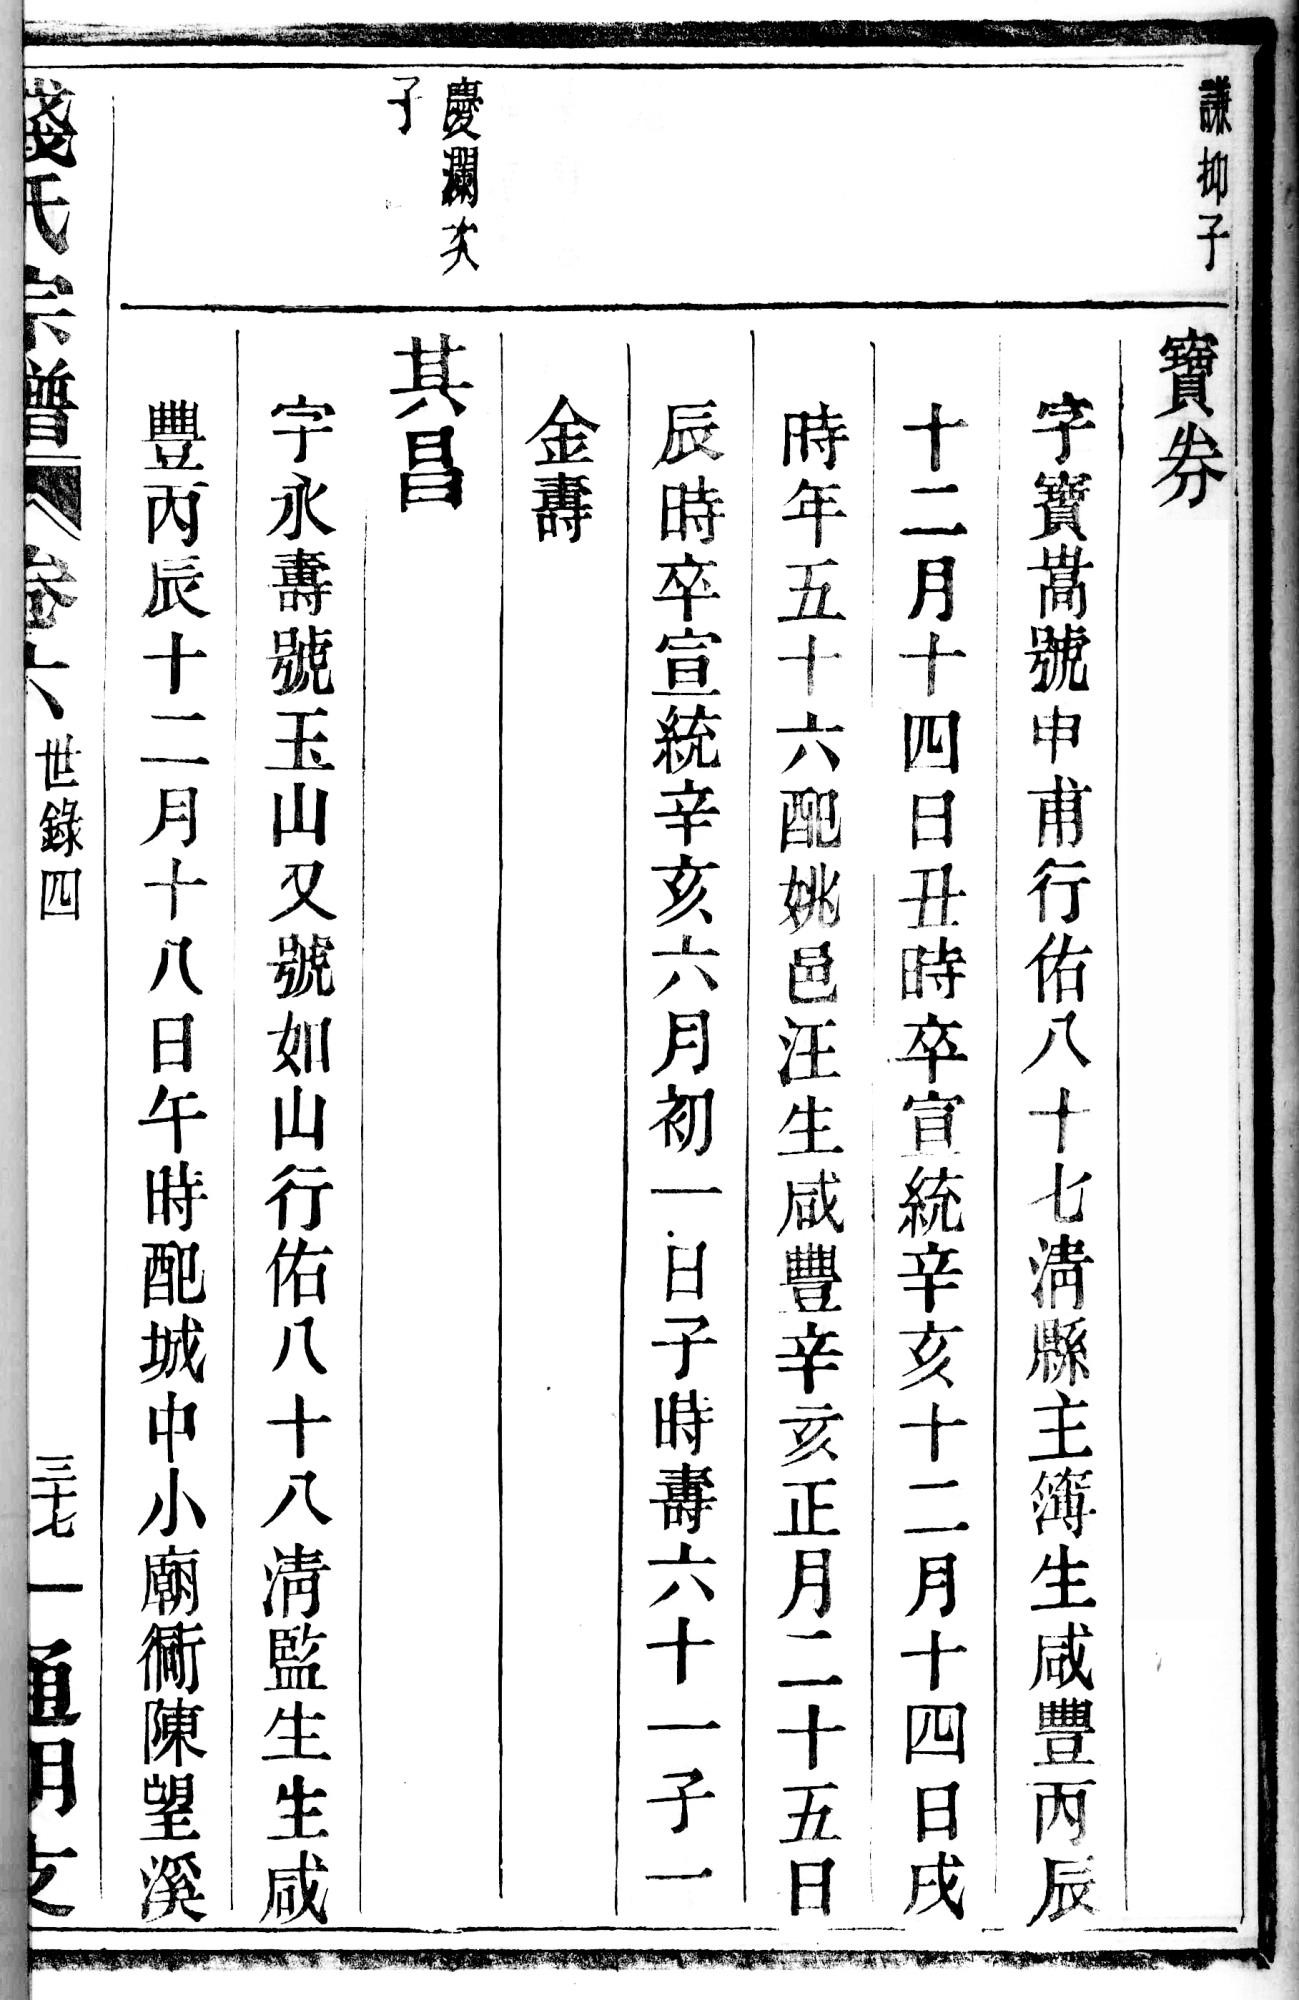 謙抑子
寶券
字寶嵩號申甫行佑八十七清縣主簿生咸豐丙辰
十二月十四日丑時卒宣統辛亥十二月十四日戌
時年五十六配姚邑汪生咸豐辛亥正月二十五日
辰時卒宣統辛亥六月初一日子時壽六十一子一
金壽
慶瀾次
子
其昌
字永壽號玉山又號如山行佑八十八清監生生咸
豐丙辰十二月十八日午時配城中小廟衕陳望溪
錢氏宗譜 卷六 世錄四 三十七 一 通明支